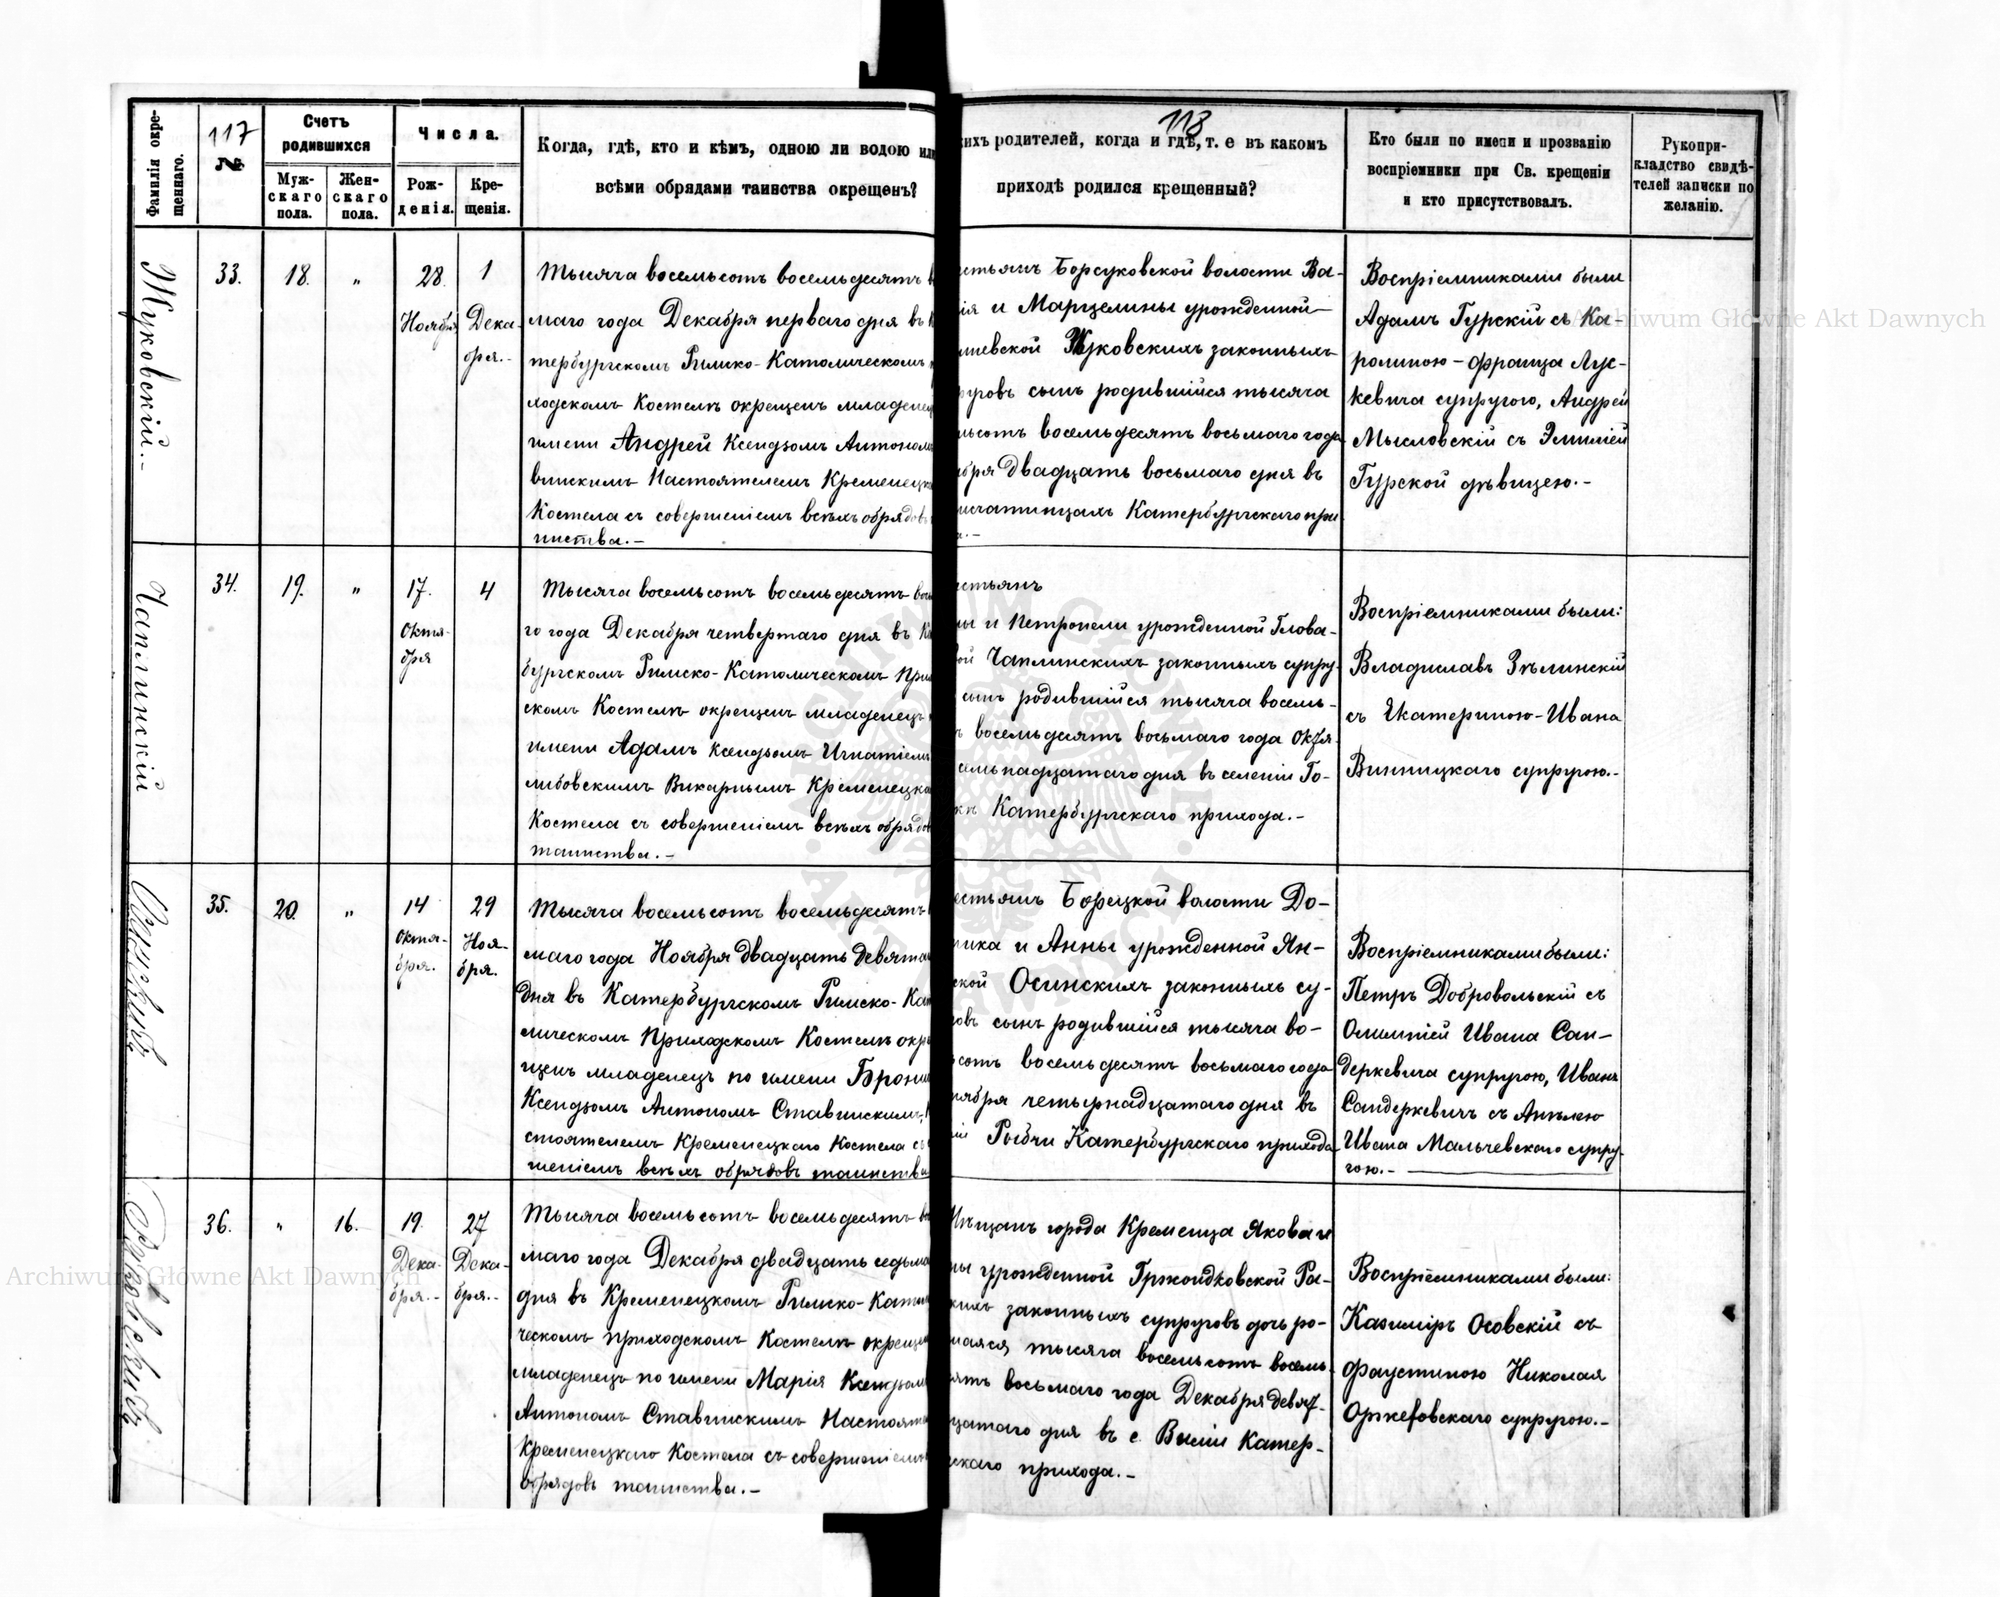 117
118
Фамилія окре-
щеннаго.
№
Счетъ
родившихся
Муж-
скаго
пола.
Жен-
скаго
пола.
Числа.
Рож-
денія.
Кре-
щенія.
Когда, гдѣ, кто и кѣмъ, одною ли водою или
всѣми обрядами таинства окрещенъ?
кихъ родителей, когда и гдѣ, т. е въ какомъ
приходѣ родился крещенный?
Кто были по имени и прозванію
воспріемники при Св. крещеніи
и кто присутствовалъ.
Рукопри-
кладство свидѣ-
телей записки по
желанію.
Жуковскій.-
33.
18.
"
28
Ноября
1
Дека-
бря.-
Тысяча восемьсотъ восемьдесятъ в
маго года Декабря перваго дня въ К
тербургскомъ Римско-Католическомъ
ходскомъ Костелѣ окрещенъ младенец
имени Андрей Ксендзомъ Антономъ
винскимъ Настоятелемъ Кременецка
Костела съ совершеніемъ всѣхъ обрядовъ
инства.-
стьянъ Борсуковской волости Ва-
ія и Марцелины урожденной
шевской Жуковскихъ законныхъ
руговъ сынъ родившійся тысяча
ьсотъ восемьдесятъ восьмаго года
бря двадцать восьмаго дня въ
Катербургскаго при
а.-
Воспріемниками были
Адамъ Гурскій съ Ка-
ролиною-Франца Лус-
кевича супругою, Андрей
Мысловскій съ Эмиліей
Гурской дѣвицею.-
Чаплинскій
34.
19.
"
17.
Октя-
бря
4
Тысяча восемьсотъ восемьдесятъ вось
го года Декабря четвертаго дня въ Ка
бургскомъ Римско-Католическомъ При
скомъ Костелѣ окрещенъ младенецъ
имени Адамъ Ксендзомъ Игнатіемъ
либовскимъ Викарнымъ Кременецка
Костела съ совершеніемъ всѣхъ обрядов
таинства.-
стьянъ
ны и Петронели урожденной Глова-
ой Чаплинскихъ законныхъ супру-
сынъ родившійся тысяча восемь-
ъ восемьдесятъ восьмаго года Октя-
семьнадцатаго дня въ селеніи Го-
кѣ Катербургскаго прихода.-
Воспріемниками были:
Владиславъ Зѣлинскій
съ Екатериною-Ивана
Винницкаго супругою.-
Осинскій
35.
20.
"
14
Октя-
бря.
29
Ноя-
бря.
Тысяча восемьсотъ восемьдесятъ
маго года Ноября двадцать девята
дня въ Катербургскомъ Римско-Кат
лическомъ Приходскомъ Костелѣ окре
щенъ младенецъ по имени Брони
Ксендзомъ Антономъ Ставинскимъ,
стоятелемъ Кременецкаго Костела съ
шеніемъ всѣхъ обрядовъ таинства
естьянъ Борецкой волости До-
ника и Анны урожденной Ян-
ской Осинскихъ законныхъ су-
овъ сынъ родившійся тысяча во-
сотъ восемьдесятъ восьмаго года
тября четырнадцатаго дня въ
іи Рыдчи Катербургскаго прихода
Воспріемниками были:
Петръ Добровольскій съ
Олимпіей Ивана Сан-
деркевича супругою, Иванъ
Сандеркевичъ съ Анѣлею
Ивана Мальчевскаго супру-
гою.-
36.
"
16.
19.
Дека-
бря.-
27
Дека-
бря.-
Тысяча восемьсотъ восемьдесятъ во
маго года Декабря двадцать седьма
дня въ Кременецкомъ Римско-Катол
ческомъ приходскомъ Костелѣ окрещен
младенецъ по имени Марія Ксендзом
Антономъ Ставинскимъ Настояте
Кременецкаго Костела съ совершеніемъ
обрядовъ таинства.-
Мѣщанъ города Кременца Якова и
ны урожденной Гржондковской Ра-
кихъ законныхъ супруговъ дочь ро-
шаяся тысяча восемьсотъ восемь-
ятъ восьмаго года Декабря девят-
цатаго дня въ с. Виліи Катер-
скаго прихода.-
Воспріемниками были:
Казиміръ Осовскій съ
Фаустиною Николая
Оржеховскаго супругою.-
Archiwum Główne Akt Dawnych
Archiwum Główne Akt Dawnych
ARCHIWUM GŁÓWNE AKT DAWNYCH